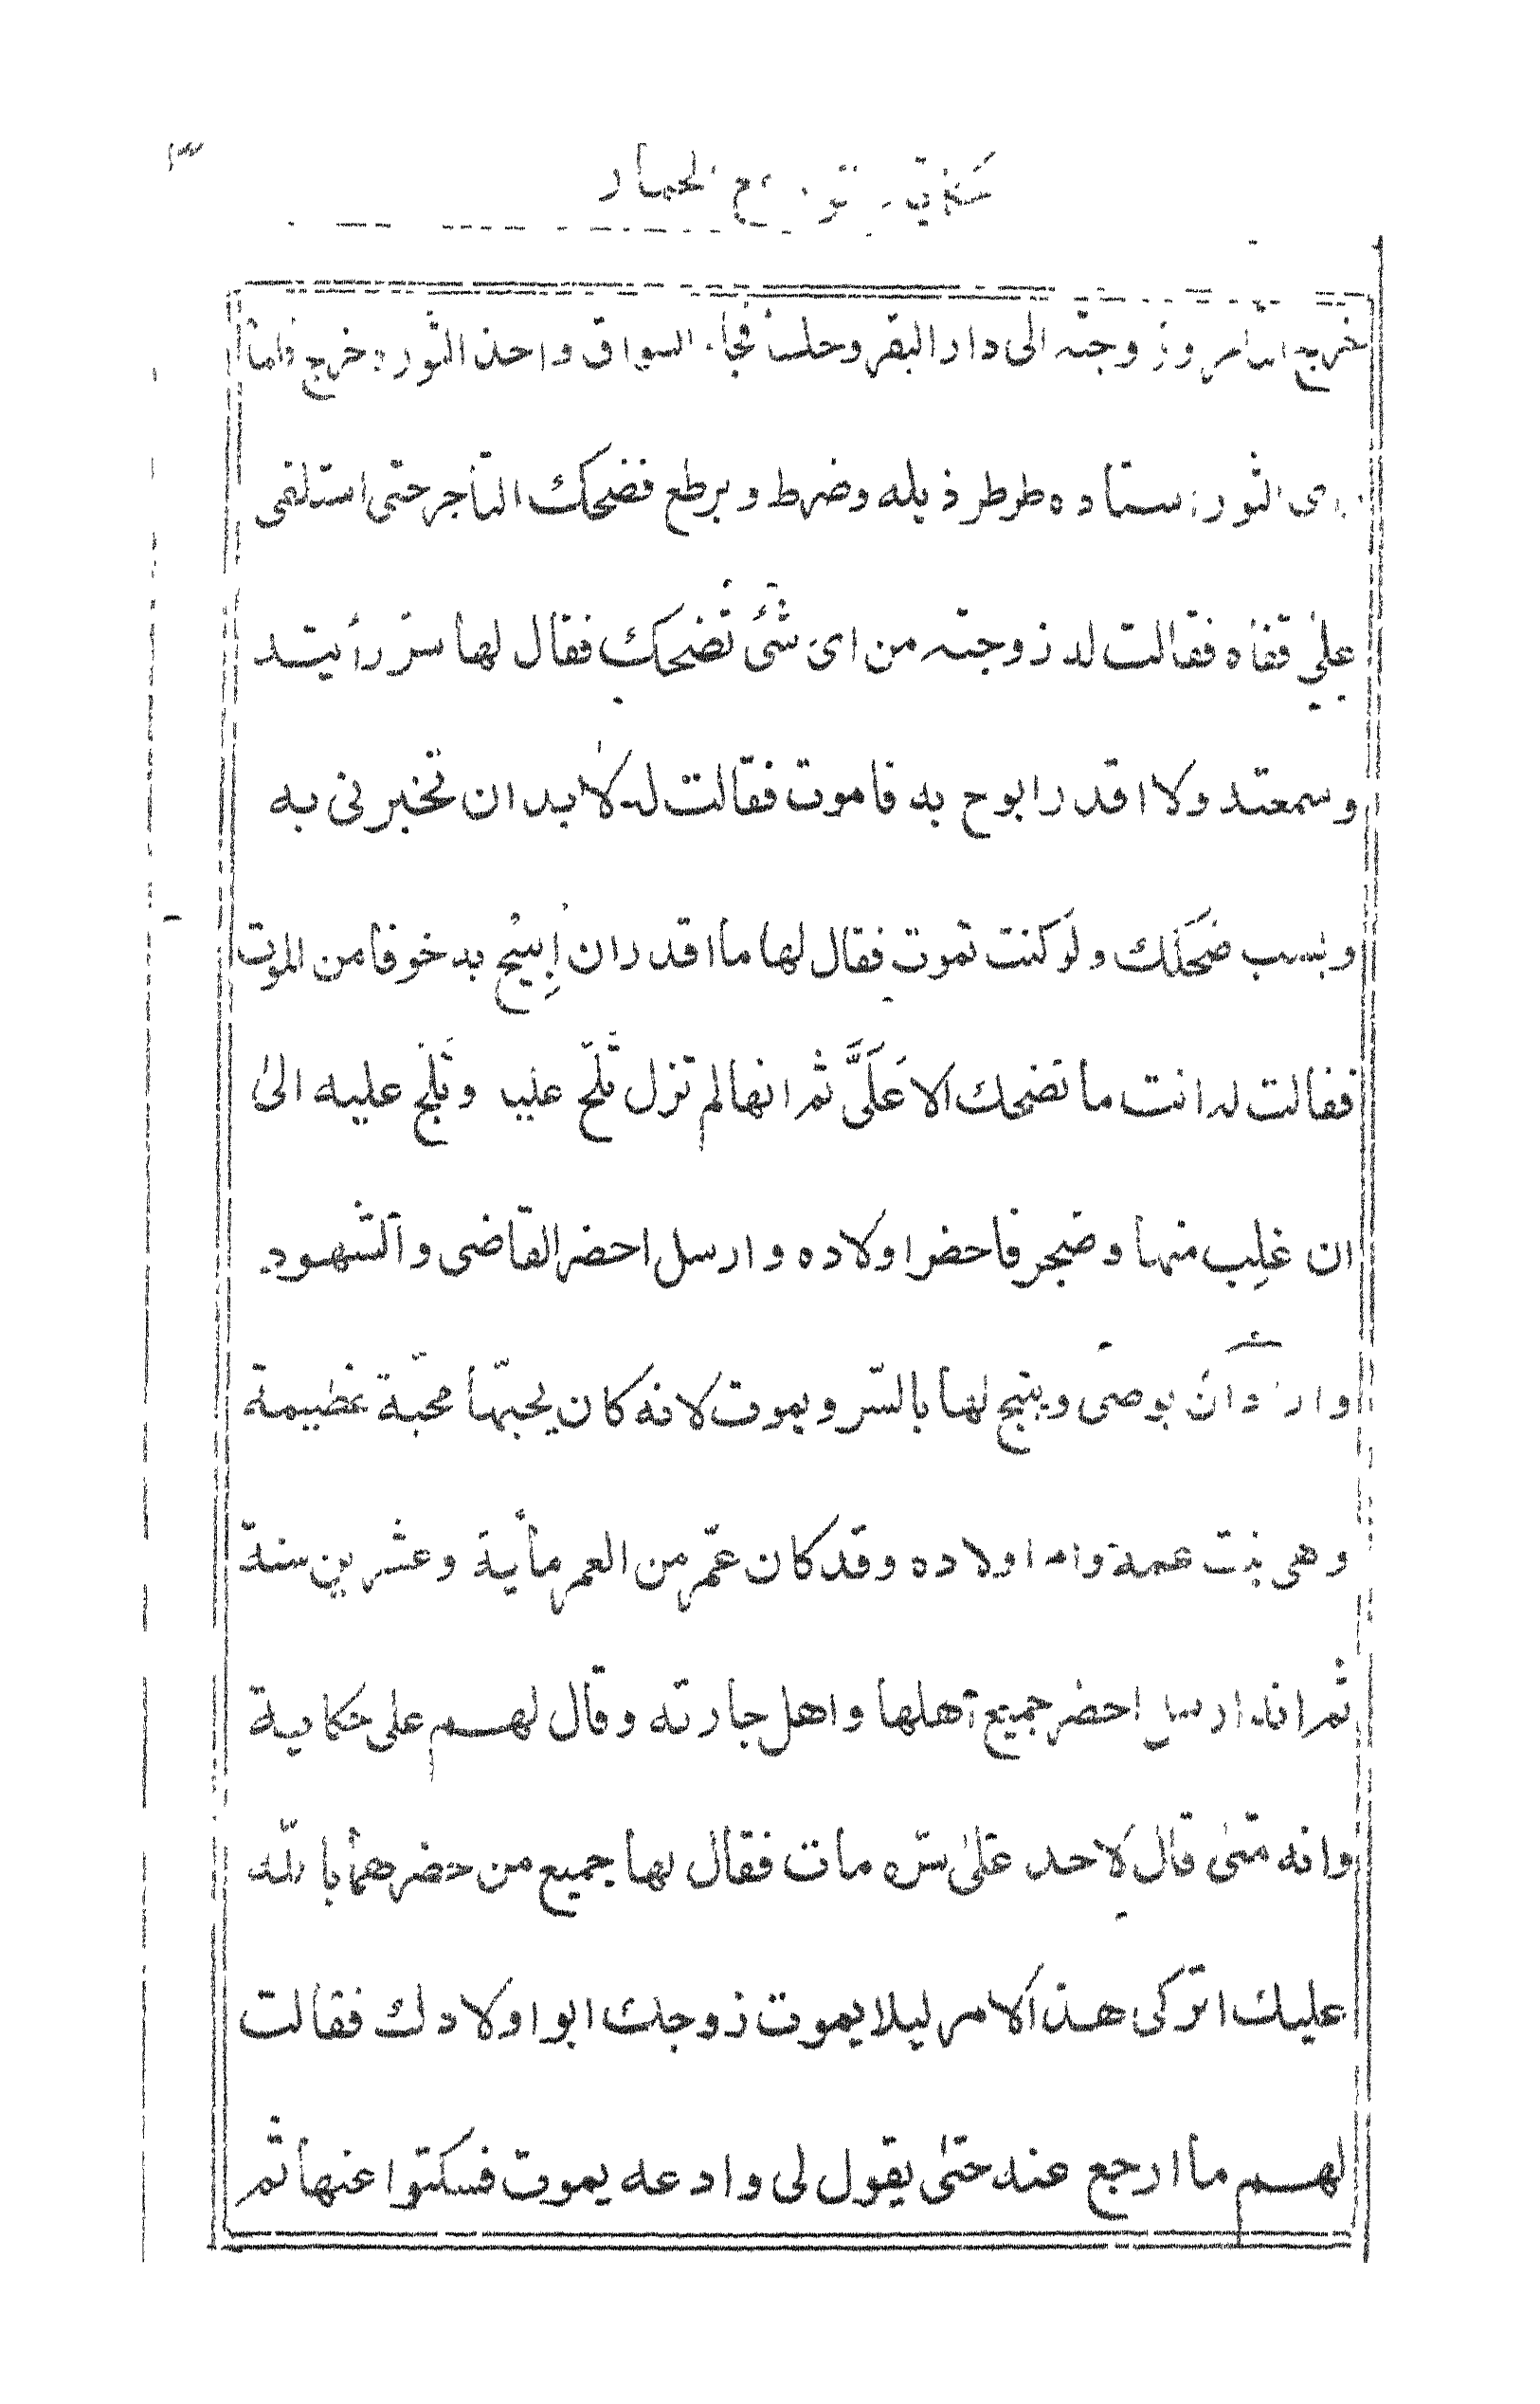 خرج التاجر وزوجته الى دار البقر وجلسا فجاء السواق واخذ الثور وخرج فلما
راى الثور استاده طرطر ذيله وضرط وبرطع فضحك التاجر حتى استلقى
على قفاه فقالت له زوجته من اى شئ تضحك فقال لها سرّ رأيته
وسمعته ولا اقدر ابوح به فاموت فقالت له لا بد ان تخبرنى به
وبسبب ضحكك ولو كنت تموت فقال لها ما اقدر ان ابيح به خوفا من الموت
فقالت له انت ما تضحك الا علىَّ ثم انها لم تزل تلحّ عليه وتلجّ عليه الى
ان غلب منها وضجر فاحضر اولاده وارسل احضر القاضى والشهود
واراد ان يوصى ويبيح لها بالسّر ويموت لانه كان يحبّها محبّة عظيمة
وهى بنت عمة وام اولاده وقد كان عمّر من العمر مأية وعشرين سنة
ثم انه ارسل احضر جميع آهلها واهل جارته وقال لهم على حكاية
وانه متى قال لاحد على سّره مات فقال لها جميع من حضر هما بالله
عليك اتركى هذا الامر ليلا يموت زوجك ابو اولادك فقالت
لهم ما ارجع عنه حتى يقول لى وادعه يموت فسكتوا عنها ثم